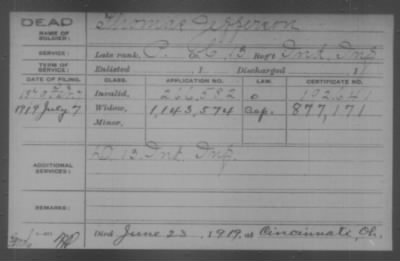 DEAD
NAME OF SOLDIER: Thomas Jefferson
SERVICE: Late rank, P. Co. 13 Reg't Inf. Inf.
TERM OF SERVICE: Enlisted 1 Discharged 1
DATE OF FILING. CLASS. APPLICATION NO. LAW. CERTIFICATE NO.
Invalid, 266,582 192,641
1919 July 7 Widow, 1,143,574 877,171
Minor,
ADDITIONAL SERVICES: D 13 Inf.
REMARKS:
Died June 23, 1919, at Cincinnati, Oh.